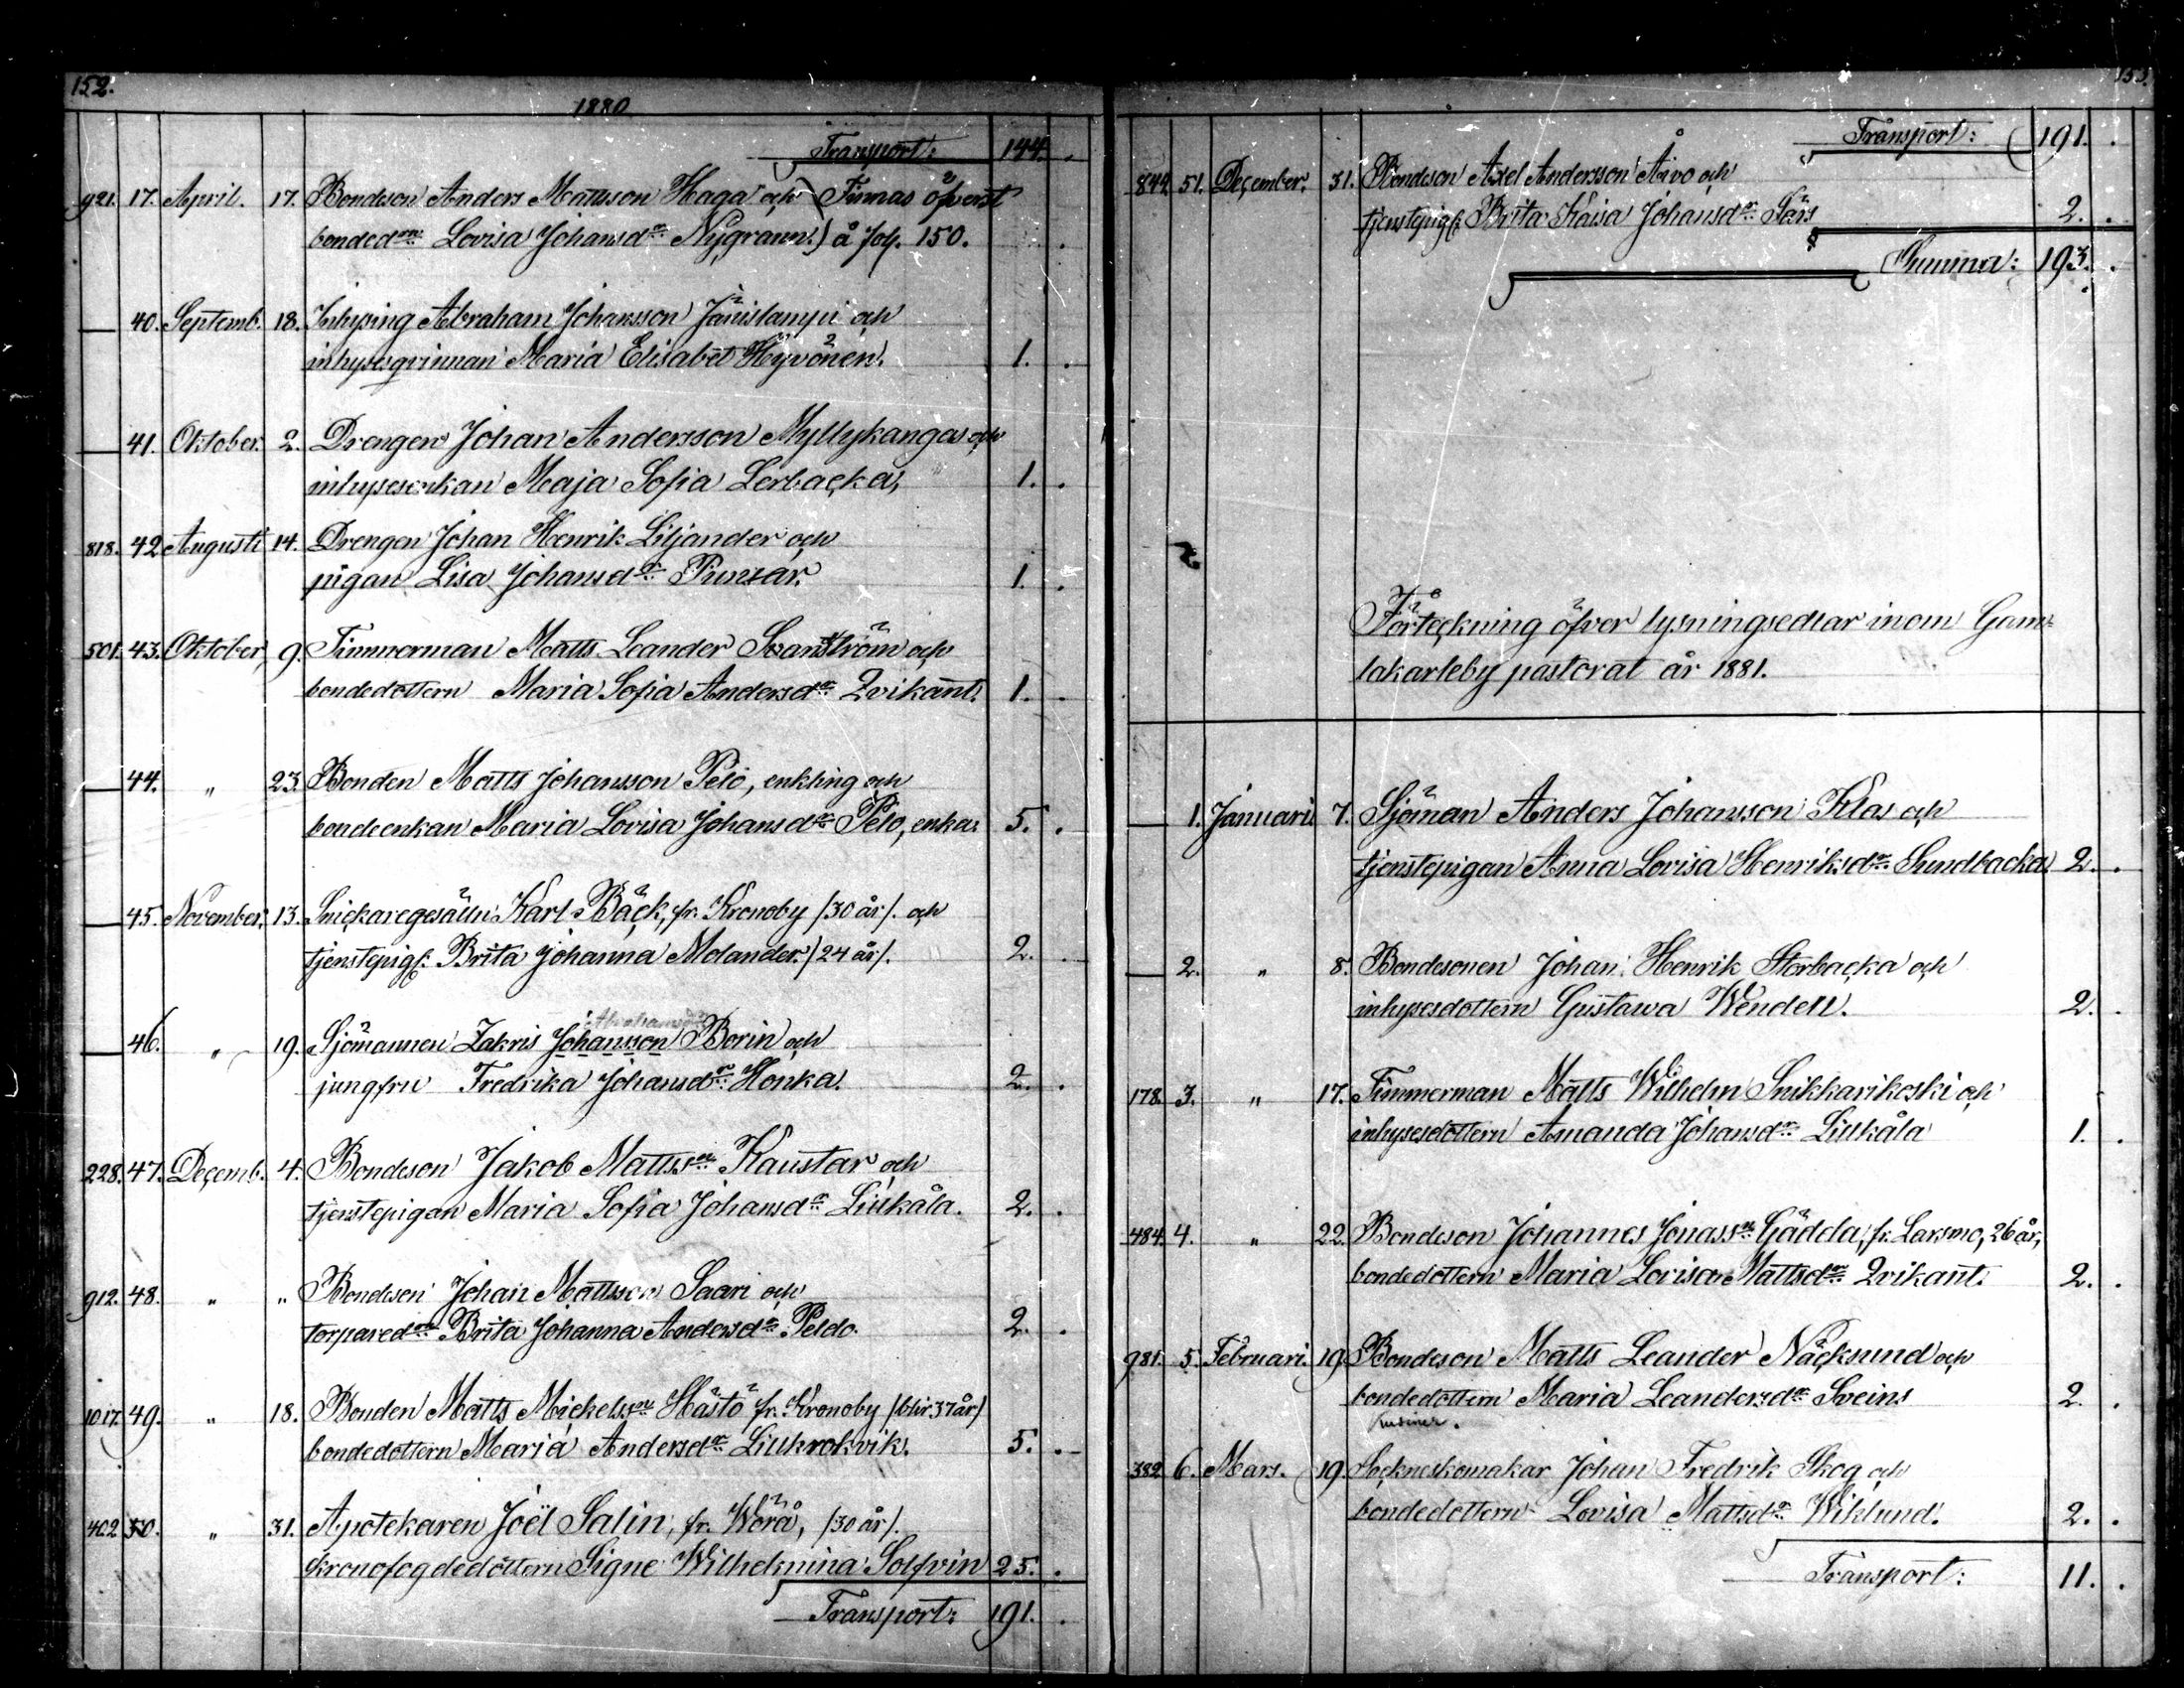 152.
1880
Transport: 144.
921. 17. April. 17. Bondeson Anders Mattsson Haga och ) Finnas öfverst
bondedn. Lovisa Johansdr. Nygrann. ) å fol. 150.
— 40. Septemb. 18. Inhysing Abraham Johansson Jänislampi och
inhysesqvinnan Maria Elisabet Hyvönen. 1.
— 41. Oktober. 2. Drengen Johan Andersson Myllykangas och
inhysesenkan Maja Sofia Lerbacka, 1.
818. 42 Augusti 14. Drengen Johan Henrik Liljander och
pigan Lisa Johansdr. Punsar. 1.
501. 43. Oktober 9. Timmerman Matts Leander Svanström och
bondedottern Maria Sofia Andersdr. Qvikant. 1.
— 44. " 23. Bonden Matts Johansson Pelo, enkling och
bondeenkan Maria Lovisa Johansdr. Pelo, enka. 5.
— 45. November. 13. Snickaregesälln Karl Bäck, fr. Kronoby /30 år/. och
tjenstepig. Brita Johanna Molander. /24 år/. 2.
Abrahamsson
— 46. " 19. Sjömannen Zakris Johansson Borin och
jungfru Fredrika Johansdr. Honka. 2.
228. 47. Decemb. 4. Bondeson Jakob Mattsson Kaustar och
tjenstepigan Maria Sofia Johansdr. Liukåla. 2.
912. 48. " " Bondeson Johan Mattsson Saari och
torparedr. Brita Johanna Andersdr. Peldo. 2.
1017. 49. " 18. Bonden Matts Mickelsson Hästö fr. Kronoby /blir 37 år/
bondedottern Maria Andersdr. Lillkrokvik. 5.
402. 50. " 31. Apotekaren Joël Salin, fr. Wörå, /30 år/.
kronofogdedottern Signe Wilhelmina Solfvin 25.
Transport: 191.
153.
Transport: 191.
842 51. December. 31. Bondeson Axel Andersson Åivo och
tjenstepig. Brita Kaisa Johansdr. Särs 2.
Summa: 193.
Förteckning öfver lysningsedlar inom Gam-
lakarleby pastorat år 1881.
— 1. Januari. 7. Sjöman Anders Johansson Klas och
tjenstepigan Anna Lovisa Henriksdr. Sundbacka 2.
— 2. " 8. Bondesonen Johan Henrik Storbacka och
inhysesdottern Gustawa Wendell. 2.
178. 3. " 17. Timmerman Matts Wilhelm Snikkarikoski och
inhysesdottern Amanda Johansdr. Liukåla 1.
484. 4. " 22. Bondeson Johannes Jonasson Gädda, fr. Larsmo, 26 år,
bondedottern Maria Lovisa Mattsdr. Qvikant. 2.
981. 5. Februari. 19. Bondeson Matts Leander Näcksund och
bondedottern Maria Leandersdr. Sveins 2.
kusiner.
382 6. Mars. 19. Sockneskomakar Johan Fredrik Skog och
bondedottern Lovisa Mattsdr. Wiklund. 2.
Transport: 11.